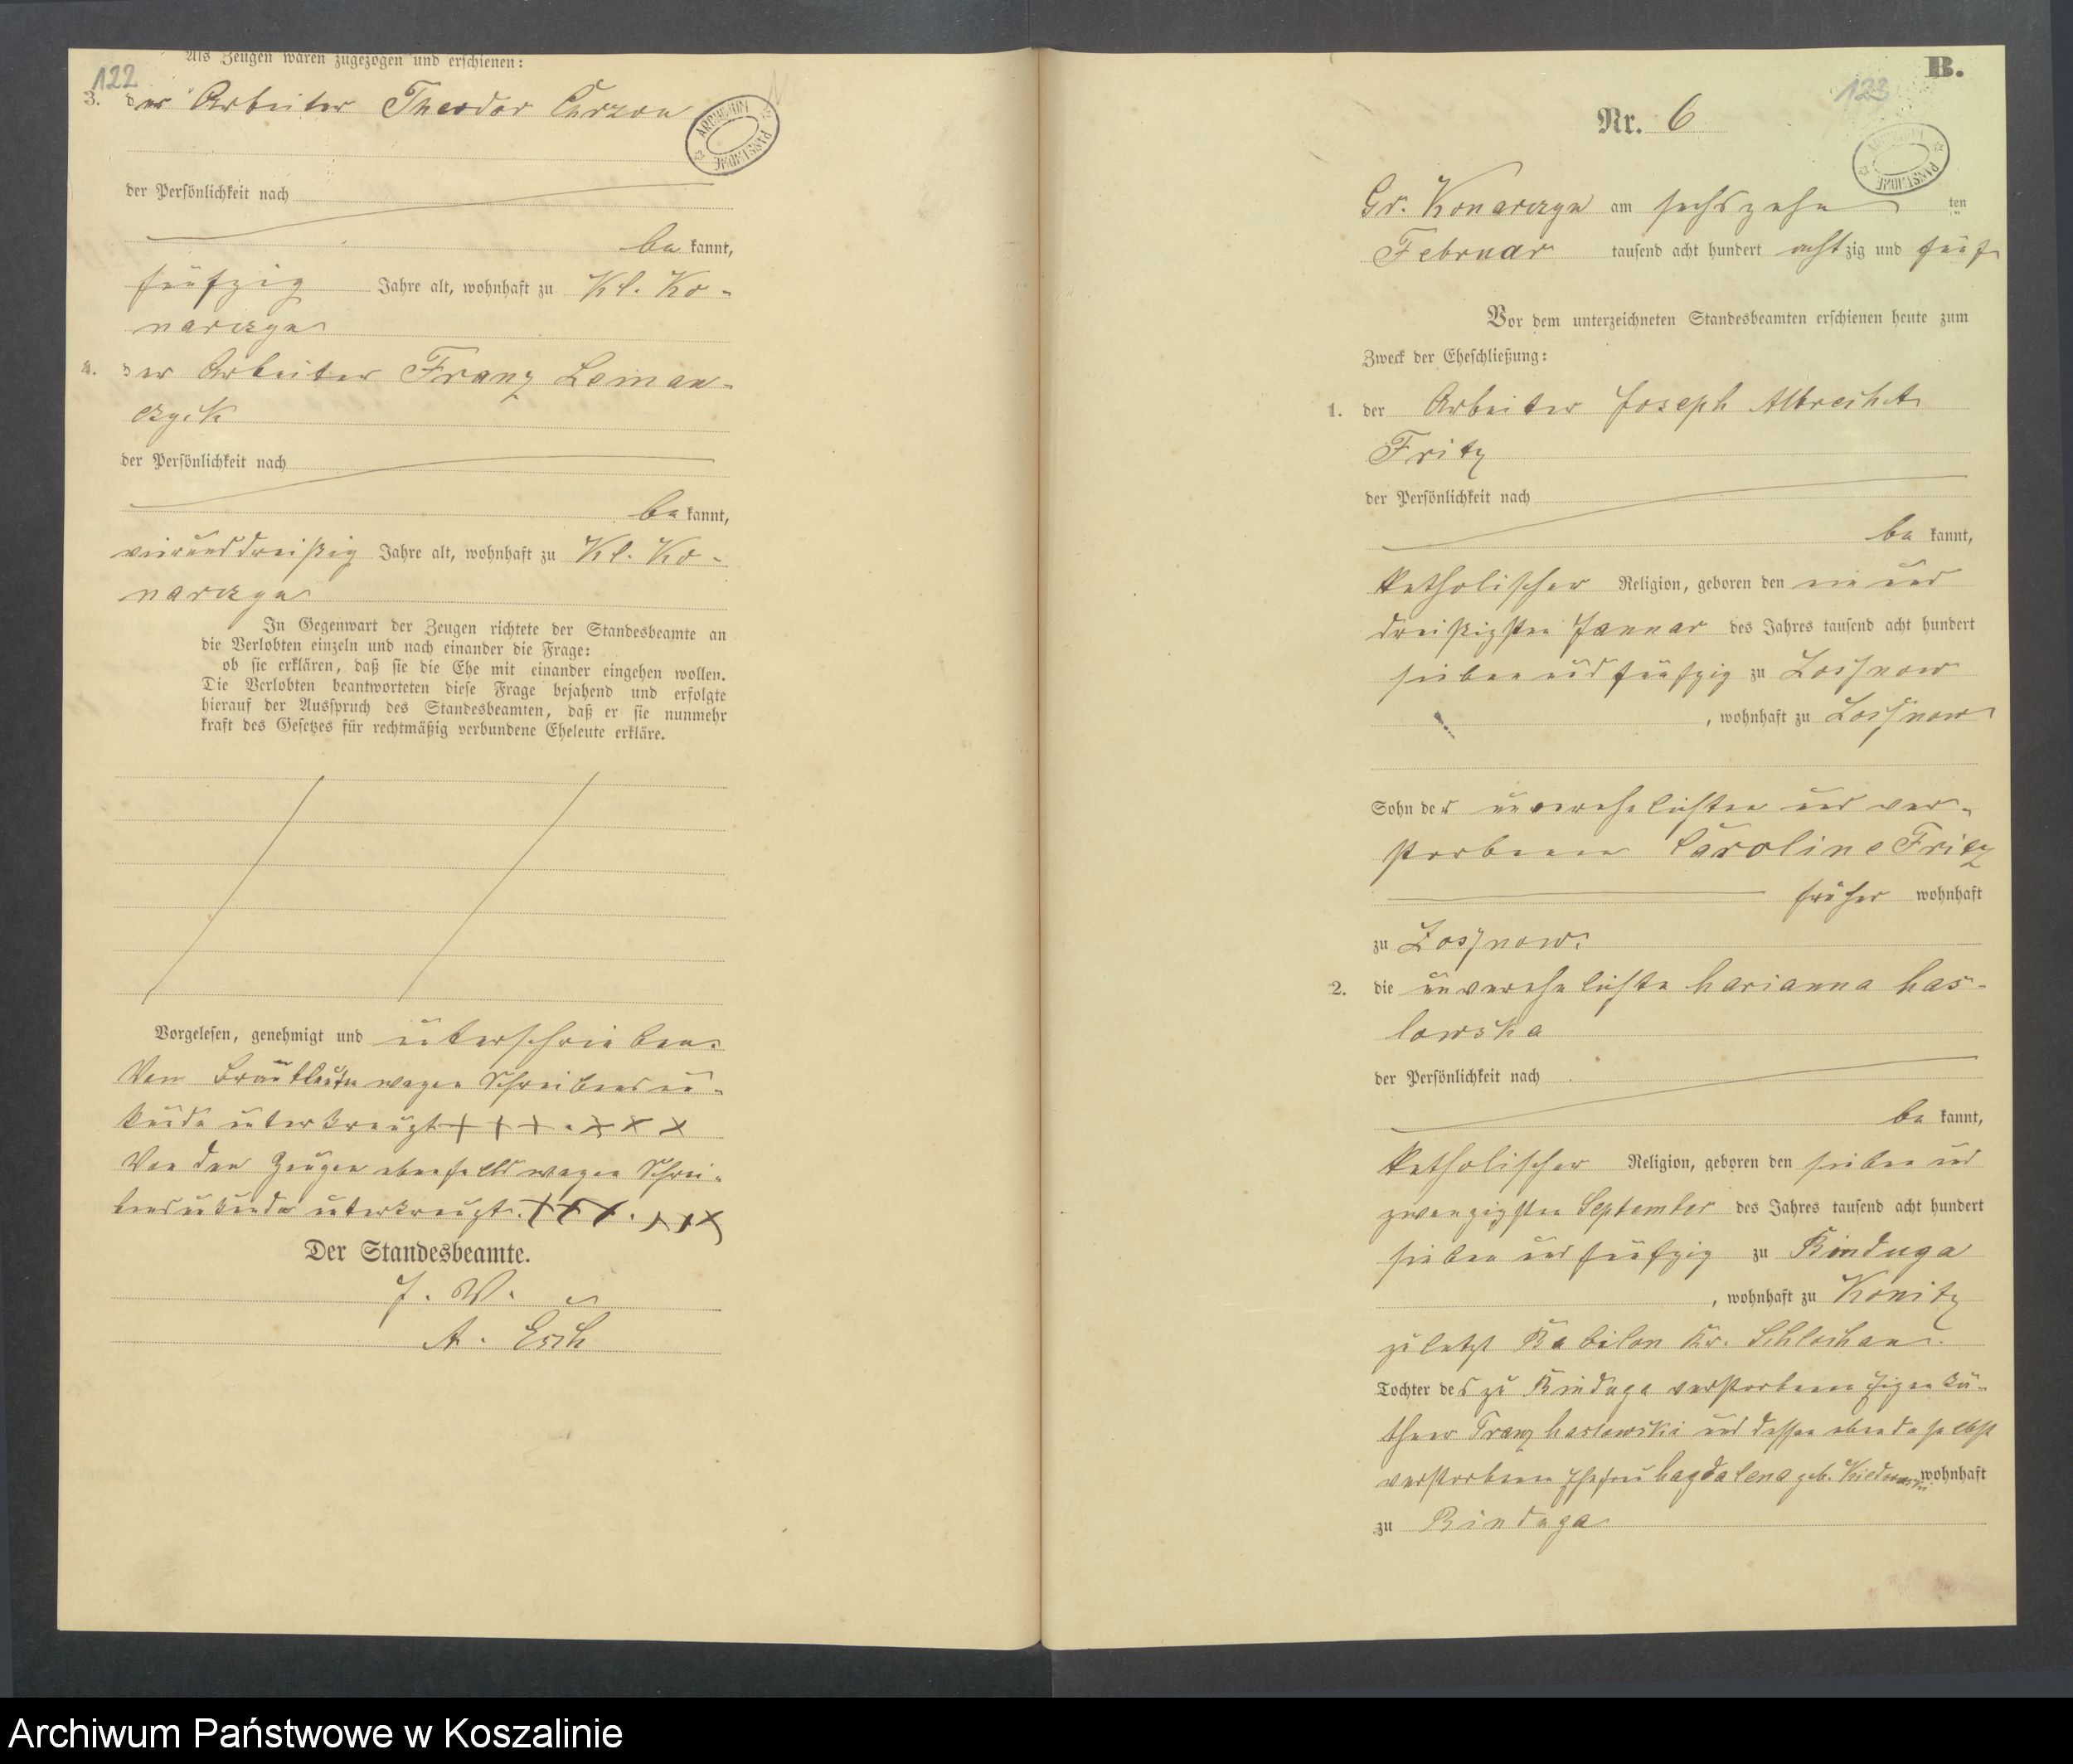 122
Als Zeugen waren zugezogen und erschienen:
3. der Arbeiter Theodor
ARCHIWUM PAŃSTWOWE
der Persönlichkeit nach
be kannt,
fünfzig Jahre alt, wohnhaft zu Kl. Ko-
narczyn
4. der Arbeiter Franz Leman-
czyk
der Persönlichkeit nach
be kannt,
vierunddreißig Jahre alt, wohnhaft zu Kl. Ko-
narczyn
In Gegenwart der Zeugen richtete der Standesbeamte an
die Verlobten einzeln und nach einander die Frage:
ob sie erklären, daß sie die Ehe mit einander eingehen wollen.
Die Verlobten beantworteten diese Frage bejahend und erfolgte
hierauf der Ausspruch des Standesbeamten, daß er sie nunmehr
kraft des Gesetzes für rechtmäßig verbundene Eheleute erkläre.
Vorgelesen, genehmigt und unterschrieben.
Von Brautleuten wegen Schreibensun-
kunde unterkreuzt +++. xxx
Von den Zeugen ebenfalls wegen Schrei-
bensunkunde unterkreuzt. +++. xxx
Der Standesbeamte.
J. V.
A. Esch
B.
123
Nr. 6
ARCHIWUM PAŃSTWOWE
Gr. Konarczyn am sechszehn ten
Februar tausend acht hundert achtzig und fünf
Vor dem unterzeichneten Standesbeamten erschienen heute zum
Zweck der Eheschließung:
1. der Arbeiter Joseph Albrecht
Fritz
der Persönlichkeit nach
be kannt,
katholischer Religion, geboren den ein und
dreißigsten Januar des Jahres tausend acht hundert
sieben und fünfzig zu
, wohnhaft zu
Sohn der unverehelichten und ver-
storbenen Caroline Fritz
früher wohnhaft
zu
2. die unverehelichte Marianna Mas-
lowska
der Persönlichkeit nach
be kannt,
katholischer Religion, geboren den sieben und
zwanzigsten September des Jahres tausend acht hundert
sieben und fünfzig zu Binduga
, wohnhaft zu Konitz
zuletzt Babilon Kr. Schlochau.
Tochter des zu Binduga verstorbenen Eigenkä-
thner Franz Maslowski und dessen ebendaselbst
verstorbenen Ehefrau Magdalena geb. wohnhaft
zu Binduga
Archiwum Państwowe w Koszalinie